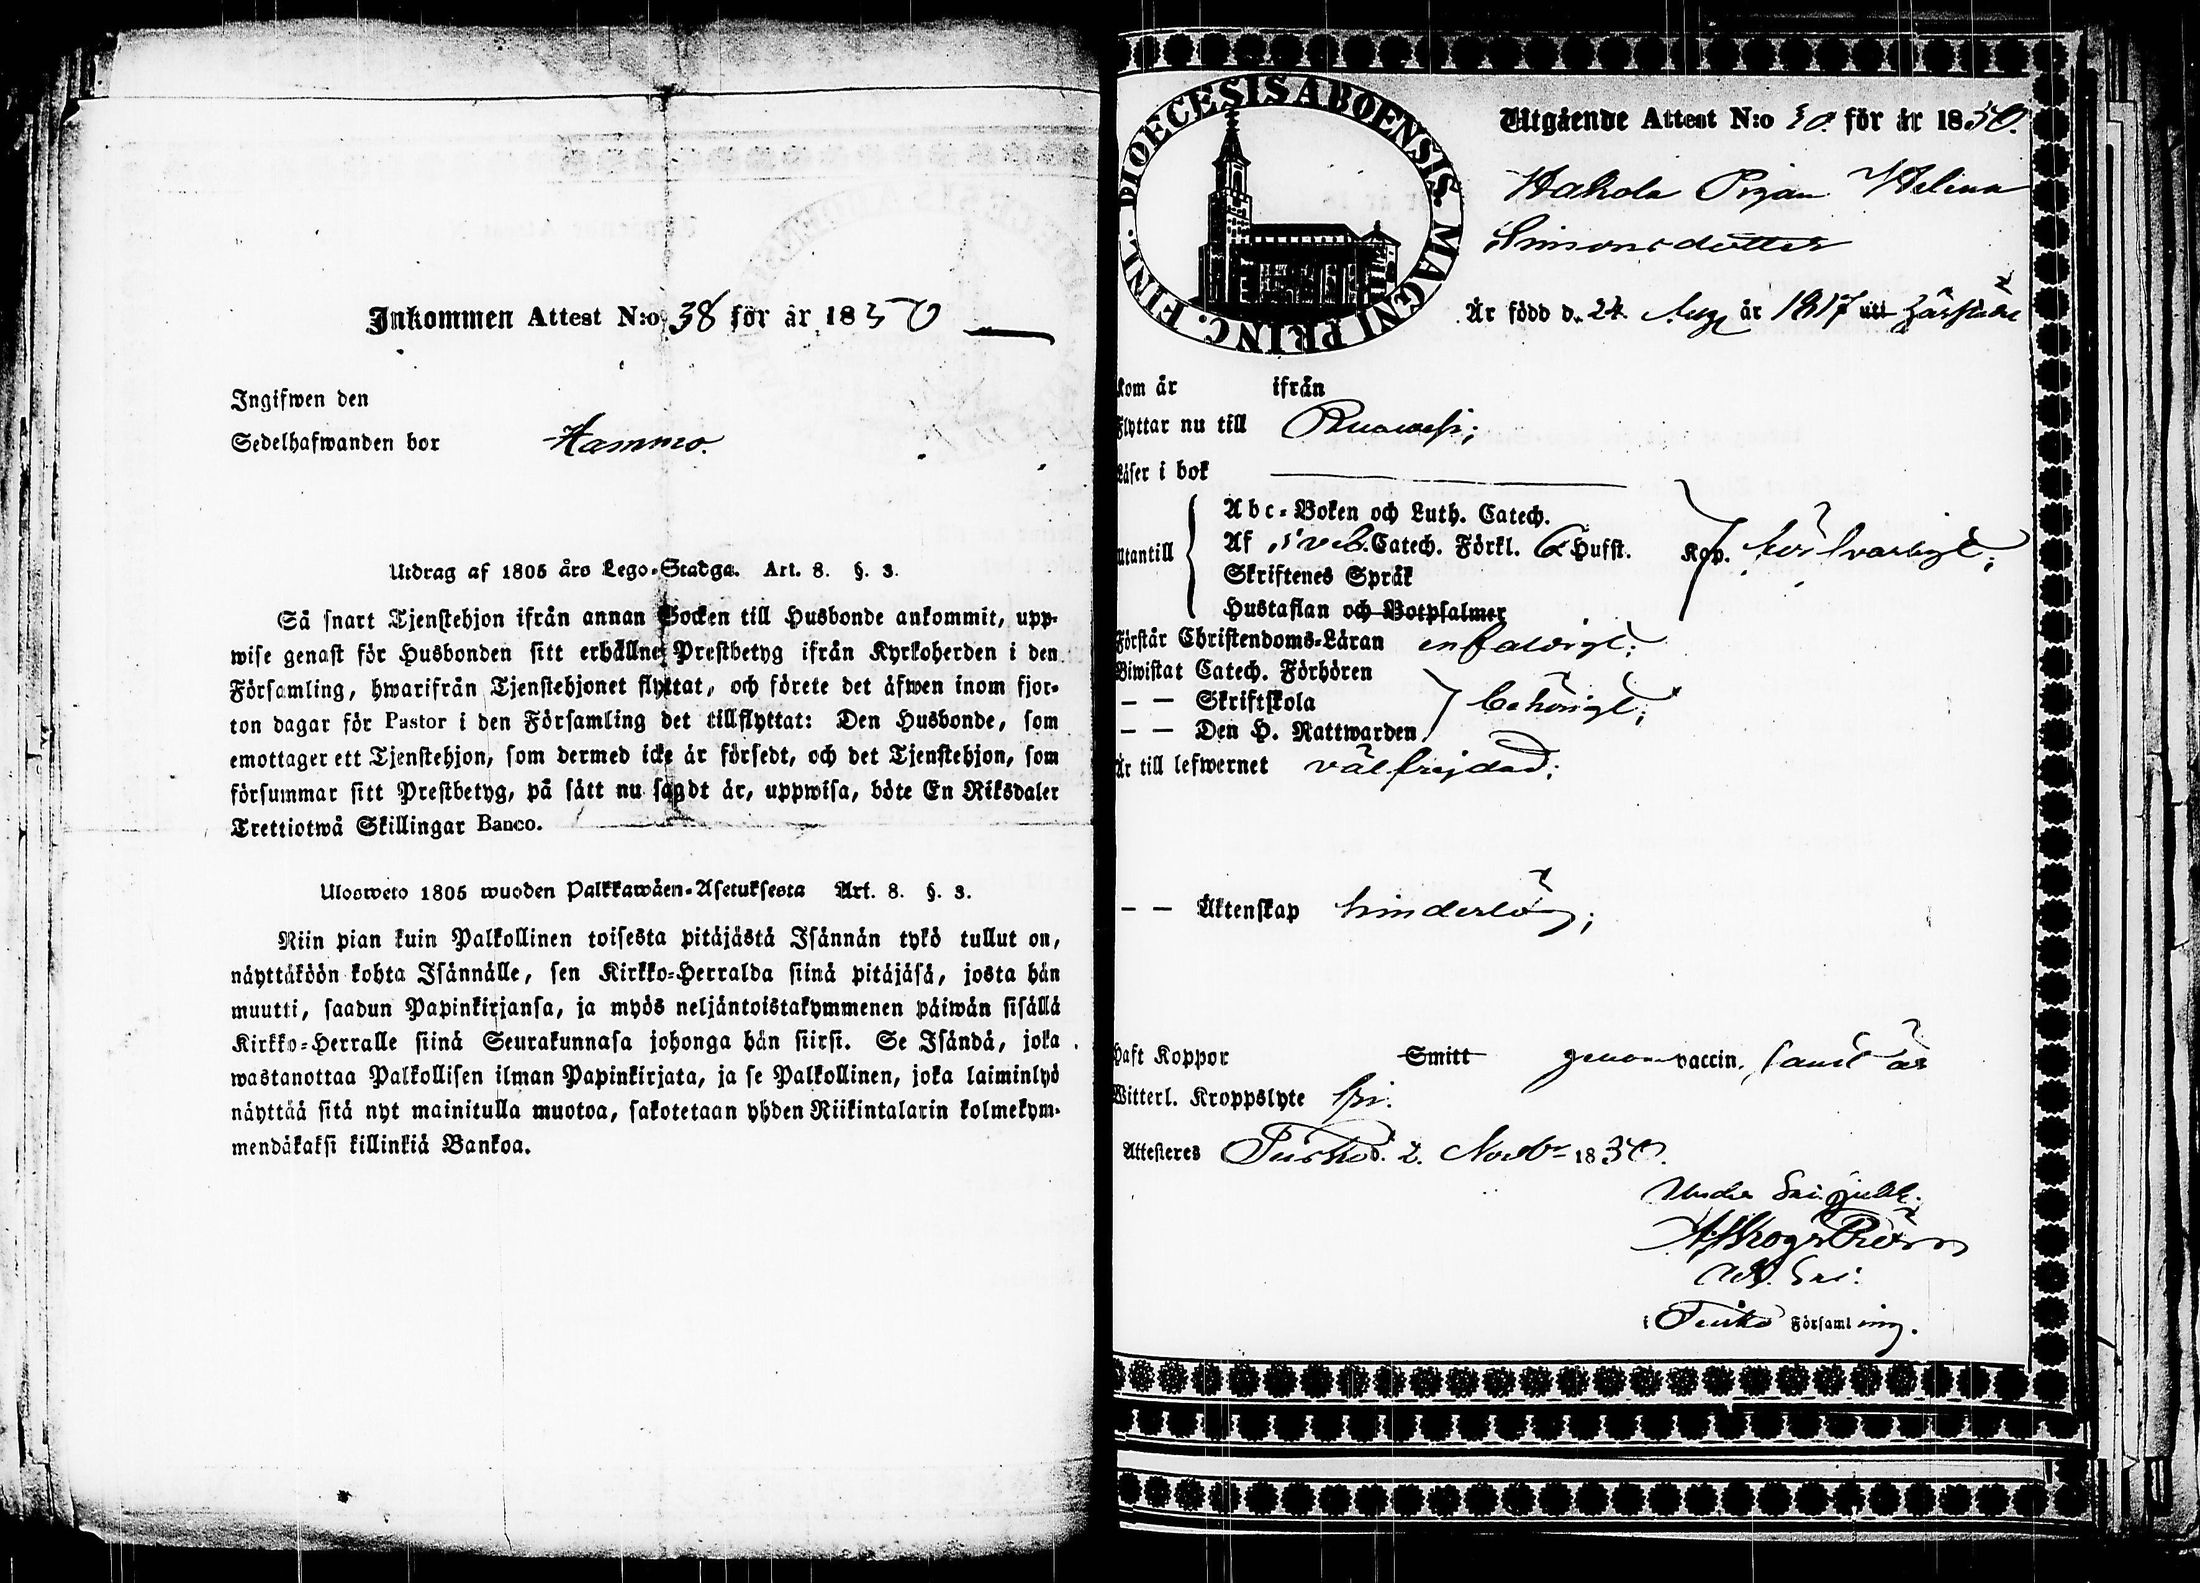 Inkommen Attest N:o 38 för år 1850
Ingifwen den
Sedelhafwanden bor Hammo.
Utdrag af 1805 års Lego-Stadga. Art. 8. §. 3.
Så snart Tjenstehjon ifrån annan Socken till Husbonde ankommit, upp-
wise genast för Husbonden sitt erhållne Prestbetyg ifrån Kyrkoherden i den
Församling, hwarifrån Tjenstehjonet flyttat, och förete det äfwen inom fjor-
ton dagar för Pastor i den Församling det tillflyttat: Den Husbonde, som
emottager ett Tjenstehjon, som dermed icke är försedt, och det Tjenstehjon, som
försummar sitt Prestbetyg, på sätt nu sagdt är, uppwisa, böte En Riksdaler
Trettiotwå Skillingar Banco.
Ulosweto 1805 wuoden Palkkawäen-Asetuksesta Art. 8. §. 3.
Niin pian kuin Palkollinen toisesta pitäjästä Isännän tykö tullut on,
näyttäköön kohta Isännälle, sen Kirkko-Herralda siinä pitäjäsä, josta hän
muutti, saadun Papinkirjansa, ja myös neljäntoistakymmenen päiwän sisällä
Kirkko-Herralle siinä Seurakunnasa johonga hän siirsi. Se Isändä, joka
wastanottaa Palkollisen ilman Papinkirjata, ja se Palkollinen, joka laiminlyö
näyttää sitä nyt mainitulla muotoa, sakotetaan yhden Riikintalarin kolmekym-
mendäkaksi killinkiä Bankoa.
DIOECESIS ABOENSIS. MAGNI PRINC. FINL.
Utgående Attest N:o 30. för år 1850.
Hakola Pigan Helena
Simonsdotter
Är född d. 24 Aug år 1817 uti
kom år ifrån
Flyttar nu till Ruowesi;
Läser i bok
Utantill
Abc-Boken och Luth. Catech.
Af Sveb. Catech. Förkl. 6 Hufst.
Skriftenes Språk
Hustaflan och Botpsalmer
Kop. försvarligt;
Förstår Christendoms-Läran enfaldigt;
Biwistat Catech. Förhören
— — Skriftskola
— — Den H. Nattwarden
behörigt;
Är till lefwernet välfrejdad;
— — Äktenskap hinderlös;
Haft Koppor Smitt genom vaccin. samt är
Witterl. Kroppslyte fri.
Attesteres Turko d. 2. Novbr 1850.
i Turko Församling.